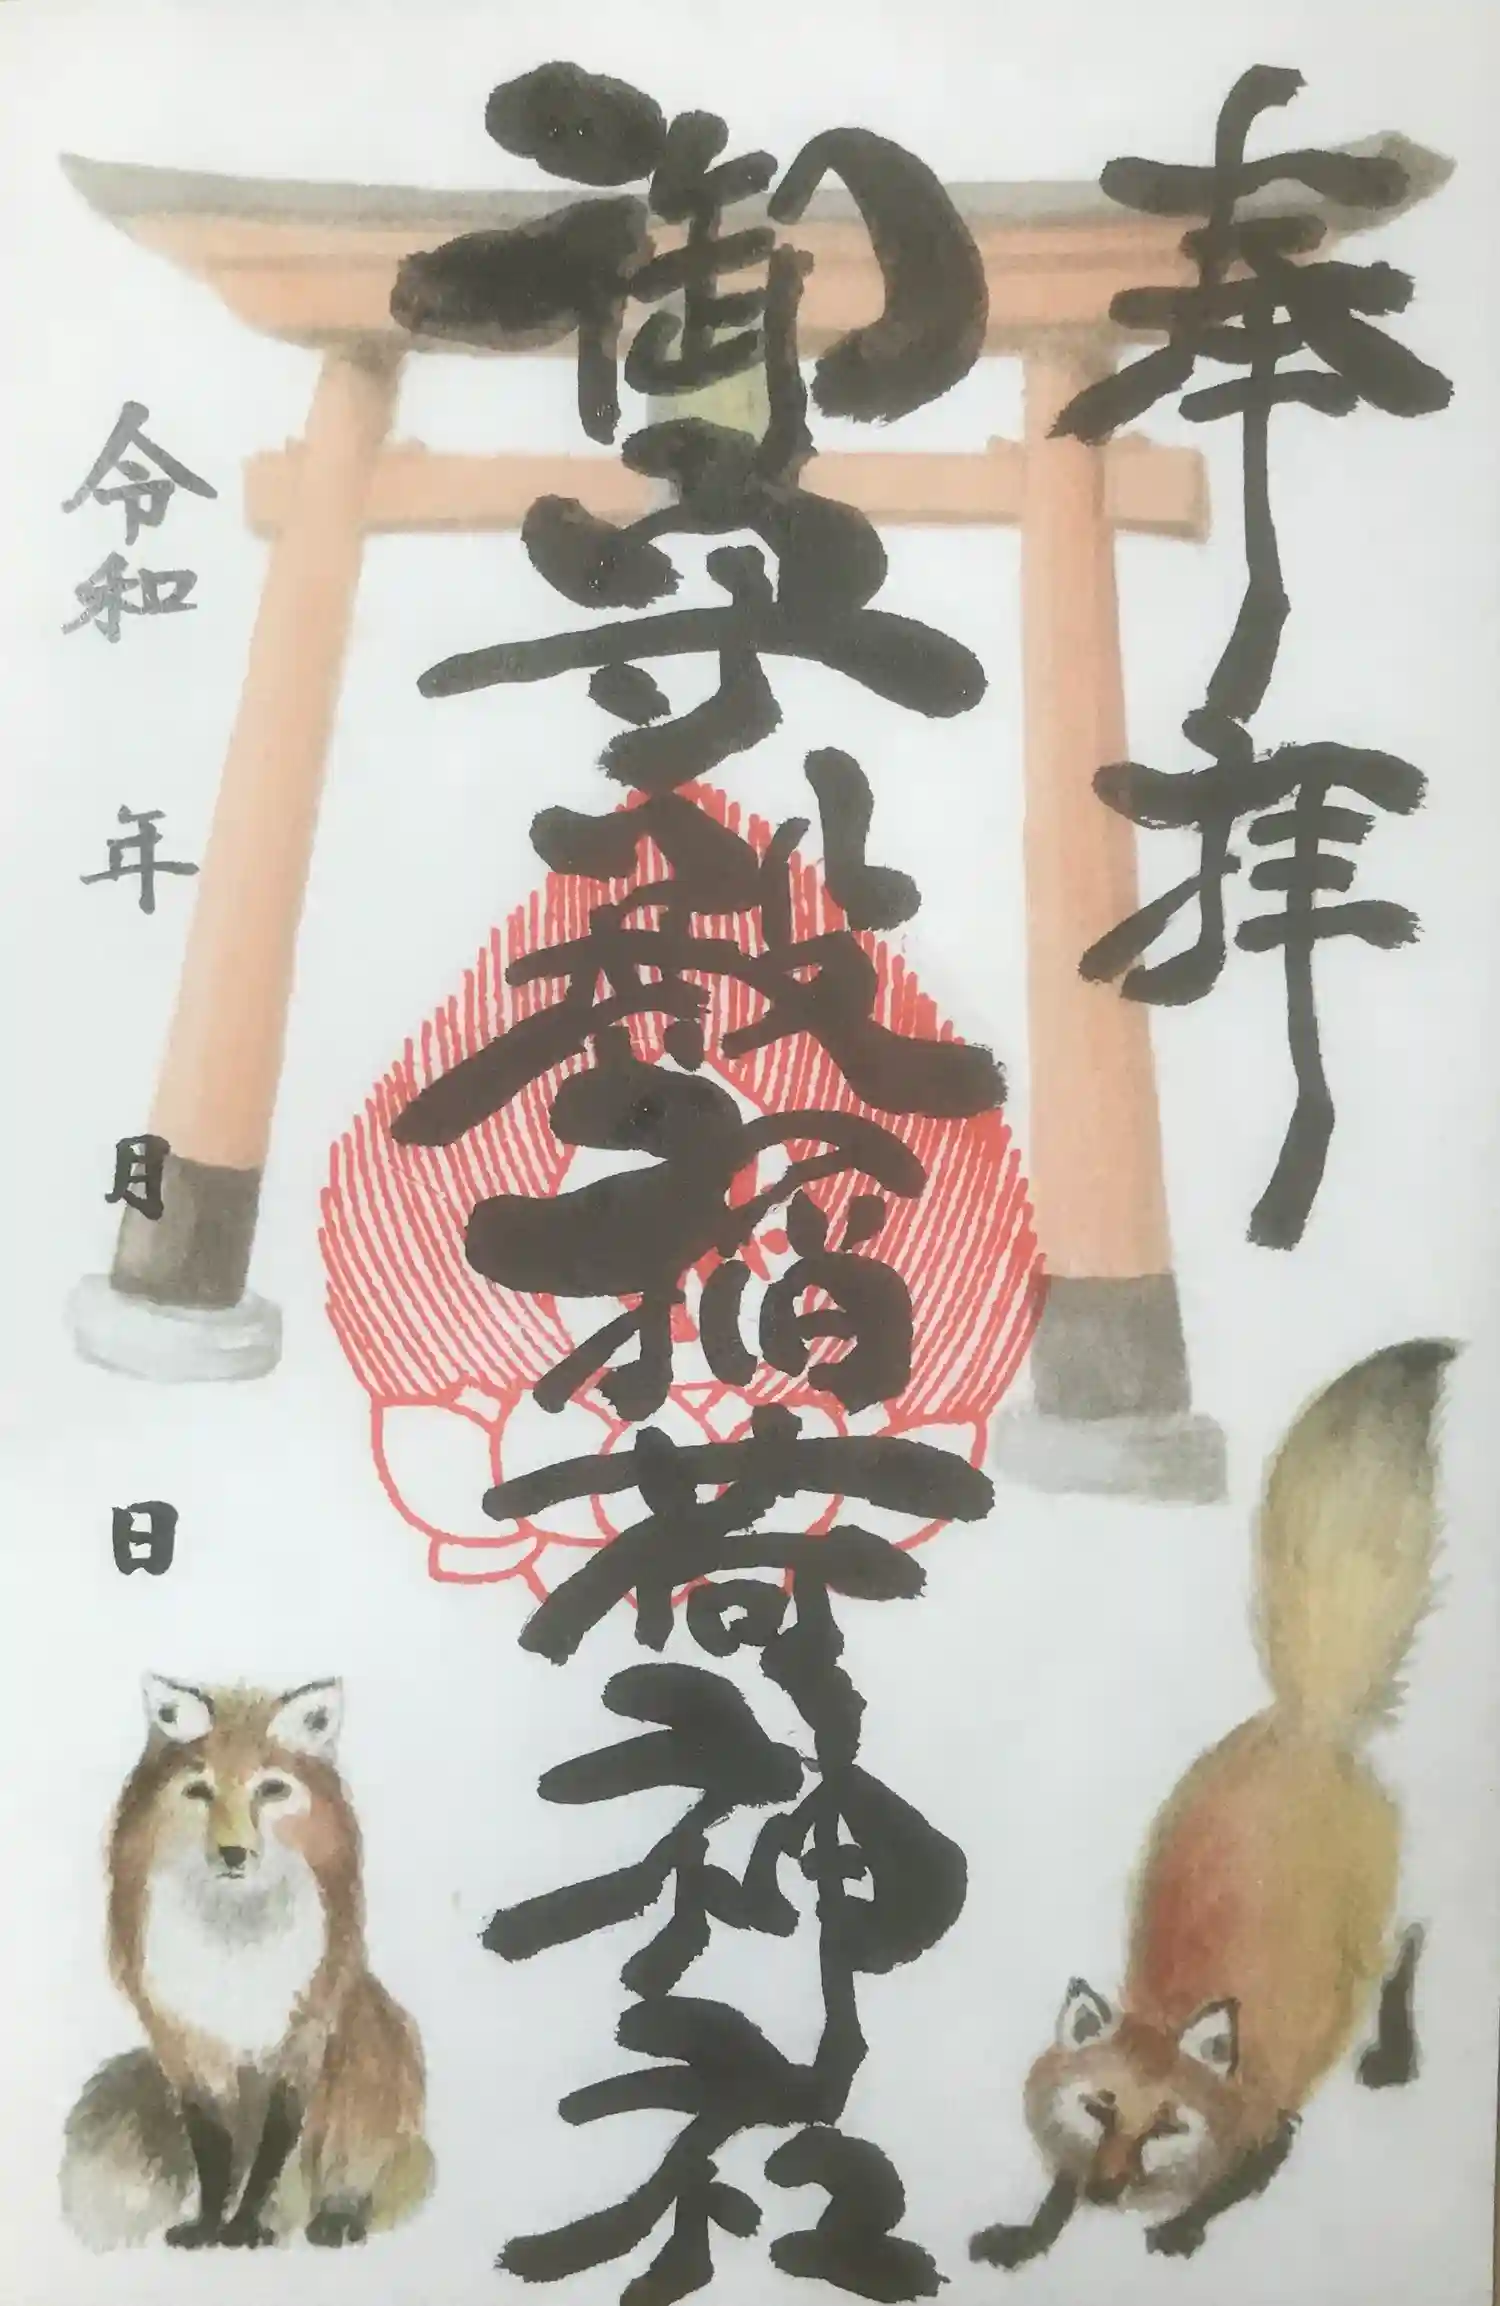 奉拝
御守殿稲荷神社
令和 年 月 日